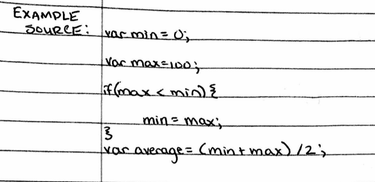 EXAMPLE
SOURCE:
var min = 0;
var max=100;
if(max < min) {
min = max;
}
var average = (min+max) /2;